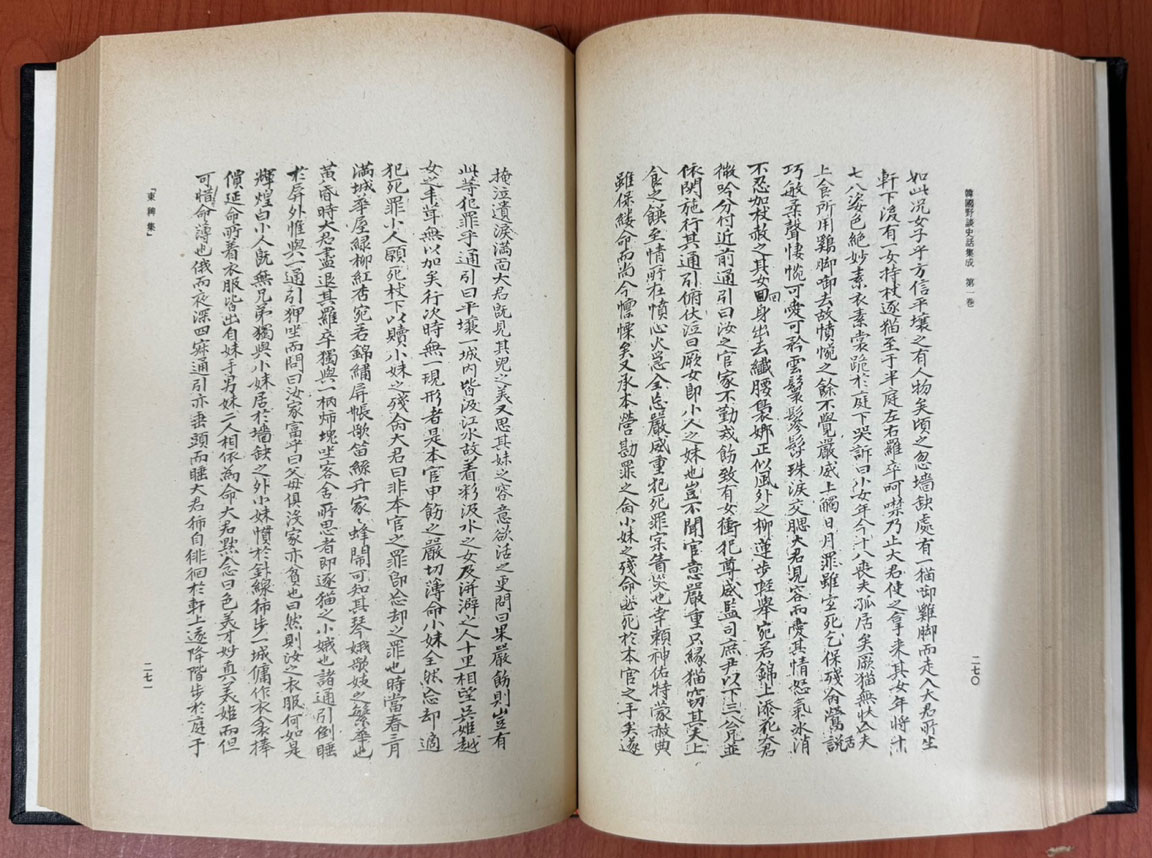 韓國野談史話集成 第一卷
如此況女子乎方信平壤之有人物矣頃之忽墻缺處有一猫啣雞脚而走入大君所坐
軒下後有一女持杖逐猫至于半庭左右羅卒呵噤乃止大君使之拿來其女年將十
七八姿色絶妙素衣素裳跪於庭下哭訴曰小女年今十八喪夫孤居矣厥猫無怏亡夫
上食所用鷄脚啣去故憤惋之餘不覺嚴威上觸日月罪雖室死乞保殘命鶯說
舌
巧敏柔聲悽惋可愛可矜雲鬟鬅髵珠淚交腮大君見容而愛其情怒氣氷消
不忍加杖赦之其女回身出去纖腰裊娜正似風外之柳蓮步輕擧宛若錦上添花大君
回
微吟分付近前通引曰汝之官家不勤戒飭致有女衝犯尊威監司庶尹以下三公兄並
依関施行其通引俯伏泣曰厥女卽小人之妹也豈不聞官意嚴重只緣猫窃其夫上
食之饌至情所在憤心火急全忘嚴威重犯死罪宗責災也幸賴神佑特蒙赦典
雖保縷命而尚今懍慄矣又承本營勘罪之命小妹之殘命必死於本官之手矣遂
二七〇
掩泣遺淚滿面大君旣見其兒之美又思其妹之容意欲活之更問曰果嚴飭則豈有
此等犯罪乎通引曰平壤一城內皆汲江水故着彩汲水之女及洴澼之人十里相望吳姬越
女之丰茸無以加矣行次時無一現形者是本官申飭之嚴切薄命小妹全然忘却適
犯死罪小人願死杖下以贖小妹之殘命大君曰非本官之罪卽忘却之罪也時當春三月
滿城華屋綠柳紅杏宛若錦繡屛帳歌笛絲升家々蜂鬧可知其琴娥歌妓之繁華也
黃昏時大君盡退其羅卒獨與一柄炳塊坐客舍所思者卽逐猫之小娥也諸通引倒睡
於屛外惟與一通引狎坐而問曰汝家富乎曰父母俱沒家亦貧也曰然則汝之衣服何如是
輝煌曰小人旣無兄弟獨與小妹居於墻缺之外小妹慣於針線稀步一城傭作衣衾捧
價延命所着衣服皆出自妹手男妹二人相依爲命大君點念曰色美才妙眞美姬而但
可惜命薄也俄而夜深四寂通引亦垂頭而睡大君稀自徘徊於軒上遂降階步於庭于
『東稗集』
二七一